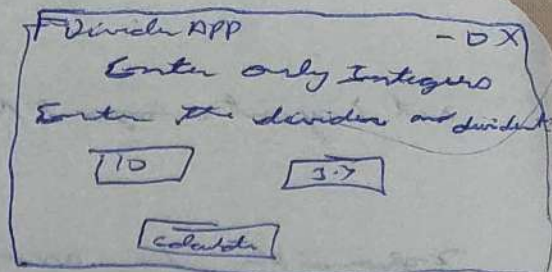 Divider APP - D X
Enter only Integers
Enter the divider and divident
10 3.7
calculate